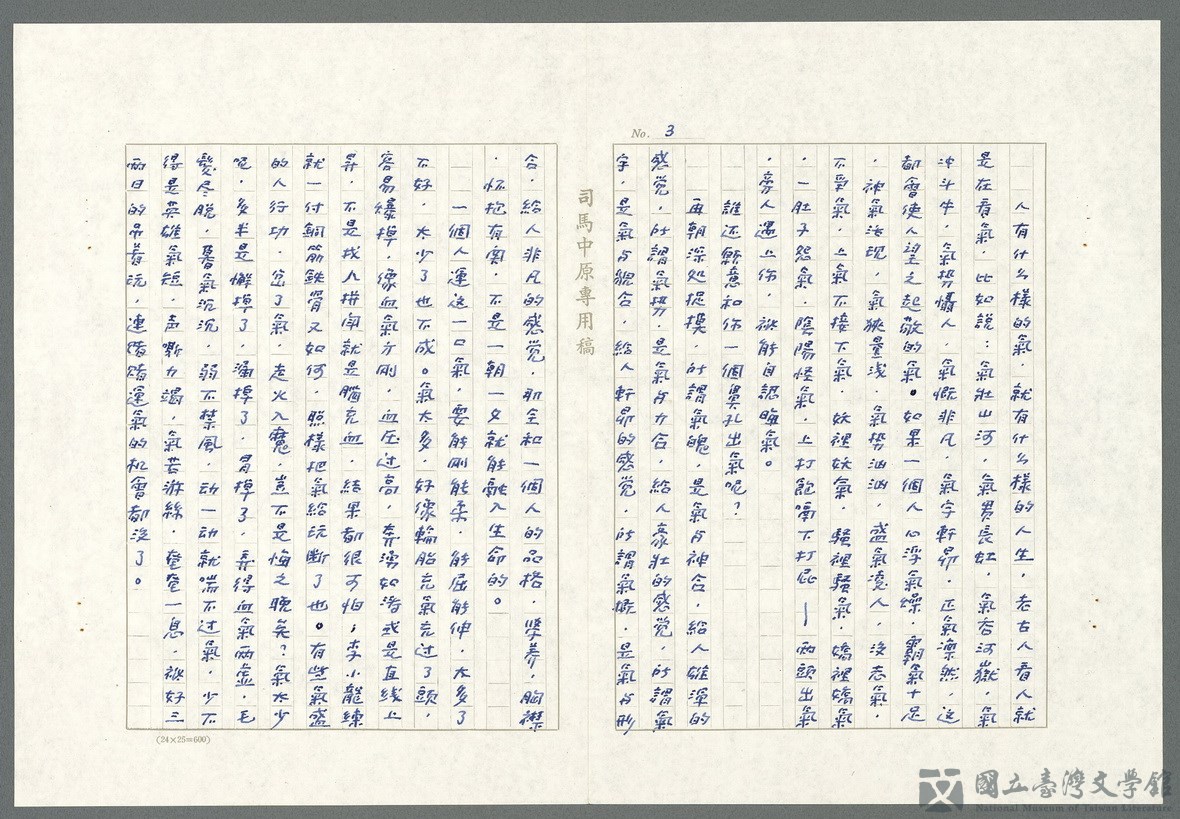 No. 3
人有什么樣的氣，就有什么樣的人生，老古人看人就
是在看氣，比如說：氣壯山河，氣貫長虹，氣吞河嶽，氣
沖斗牛，氣势懾人，氣慨非凡，氣宇軒昂，正氣凛然，这
都會使人望之起敬的氣。如果一個人心浮氣燥，霸氣十足
，神氣活现，氣狹量浅，氣势汹汹，盛氣凌人，沒志氣，
不爭氣，上氣不接下氣，妖裡妖氣，騷裡騷氣，嬌裡嬌氣
，一肚子怨氣，陰陽怪氣，上打飽嗝下打屁——两頭出氣
，旁人遇上你，祇能自認晦氣。
誰还願意和你一個鼻孔出氣呢？
再朝深处捉摸，所謂氣魄，是氣与神合，給人雄渾的
感觉，所謂氣势，是氣与力合，給人豪壮的感觉，所謂氣
宇，是氣与貌合，給人軒昂的感觉，所謂氣慨，是氣与形
司馬中原專用稿
合，給人非凡的感觉，耶至和一個人的品格，學养，胸襟
，怀抱有関，不是一朝一夕就能融入生命的。
一個人運這一口氣，要能刚能柔，能屈能伸，太多了
不好，太少了也不成。氣太多，好像輪胎充氣充过了頭，
容易爆掉，像血氣方刚，血压过高，奔湧如潮或是直线上
昇，不是找人拼闹就是腦充血，结果都很可怕，李小龍練
就一付銅筋鉄骨又如何，照樣把氣給玩断了也。有些氣盛
的人行功，岔了氣，走火入魔，豈不是悔之晚矣？氣太少
呢，多半是懈掉了，漏掉了，冒掉了，弄得血氣两虛，毛
髮尽脱，暮氣沉沉，弱不禁風，动一动就喘不过氣，少不
得是英雄氣短，声嘶力竭，氣若游絲，奄奄一息，祇好三
两日的吊着玩，連踏踏運氣的机會都沒了。
(24×25=600)
國立臺灣文學館
National Museum of Taiwan Literature